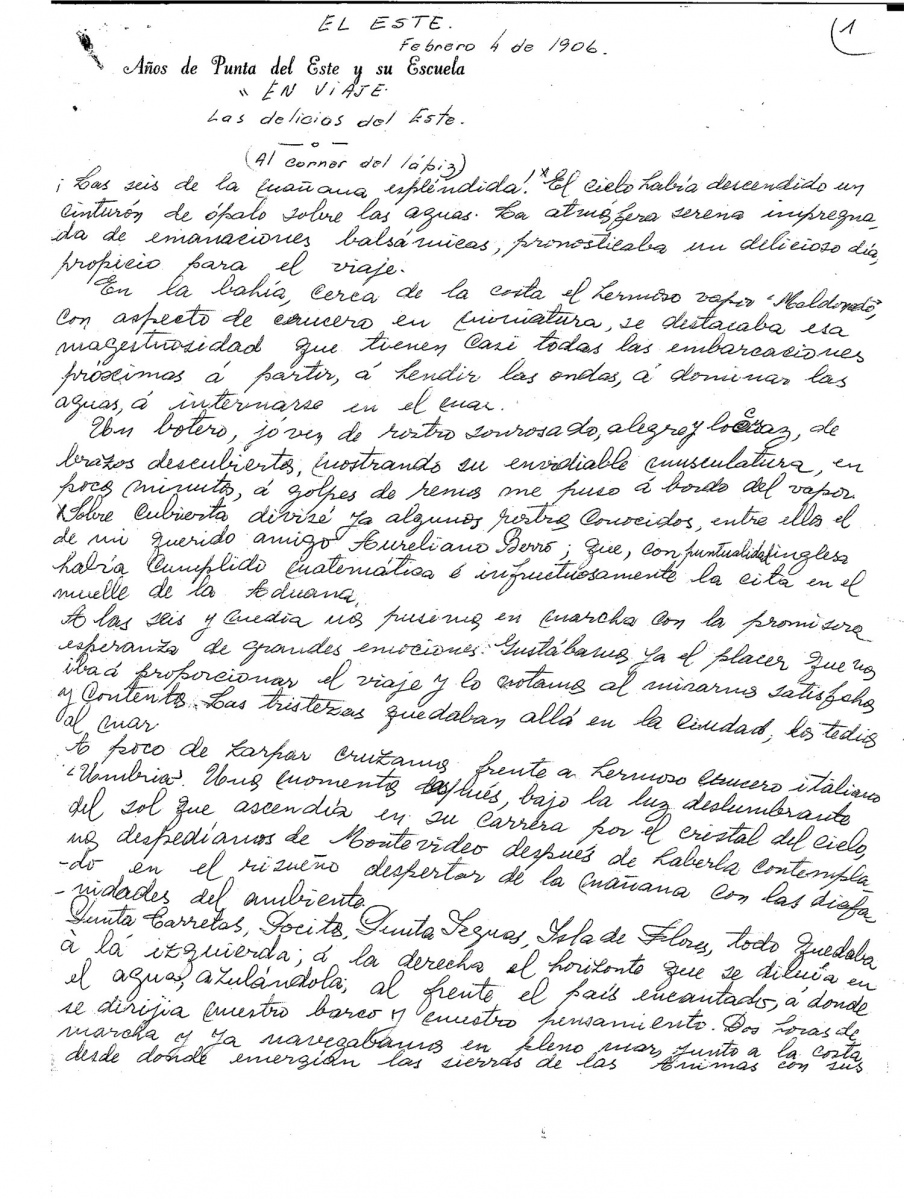 EL ESTE.
Febrero 4 de 1906.
1
Años de Punta del Este y su Escuela
"EN VIAJE.
Las delicias del Este.
— o —
(Al correr del lápiz)
¡Las seis de la mañana espléndida! El cielo había descendido un
cinturón de ópalo sobre las aguas. La atmósfera serena impregna
da de emanaciones balsámicas, pronosticaba un delicioso día,
propicio para el viaje.
En la bahía, cerca de la costa el hermoso vapor "Maldonado",
con aspecto de crucero en miniatura, se destacaba esa
magestuosidad que tienen casi todas las embarcaciones
próximas á partir, á hendir las ondas, á dominar las
aguas, á internarse en el mar.
Un botero, joven de rostro sonrosado, alegre y locuaz, de
brazos descubiertos, mostrando su envidiable musculatura, en
pocos minutos, á golpes de remos me puso á bordo del vapor
Sobre cubierta divisé ya algunos rostros conocidos, entre ellos el
de mi querido amigo Aureliano Berro; que, con puntualidad inglesa
había cumplido matemática é infructuosamente la cita en el
muelle de la Aduana.
A las seis y media nos pusimos en marcha con la promisora
esperanza de grandes emociones. Gustábamos ya el placer que nos
iba á proporcionar el viaje y lo notamos al mirarnos satisfechos
y contentos. Las tristezas quedaban allá en la ciudad; los tedios
al mar
A poco de zarpar cruzamos frente a hermoso crucero italiano
"Umbria". Unos momentos después, bajo la luz deslumbrante
del sol que ascendía en su carrera por el cristal del cielo,
nos despedíamos de Montevideo después de haberla contempla
-do en el risueño despertar de la mañana con las diafa
-nidades del ambiente
Punta Carretas, Pocitos, Punta Yeguas, Isla de Flores, todo quedaba
à la izquierda; á la derecha el horizonte que se diluía en
el agua, azulándola; al frente el país encantado, á donde
se dirijia nuestro barco y nuestro pensamiento. Dos horas de
marcha y ya navegabamos en pleno mar, junto a la costa
desde donde emergían las sierras de las Animas con sus